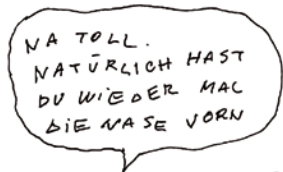 NA TOLL.
NATÜRLICH HAST
DU WIEDER MAL
DIE NASE VORN